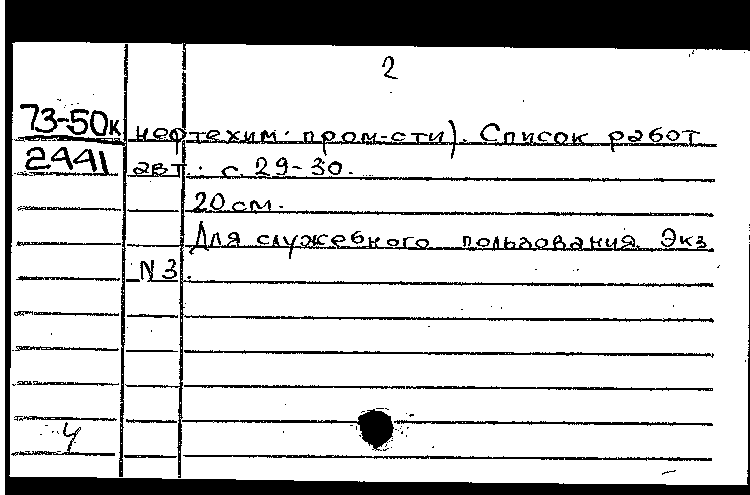 2
73-50к нефтехим. пром-сти). Список работ
2441 авт. с. 29-30.
20 см.
Для служебного пользования. Экз.
N 3.
4